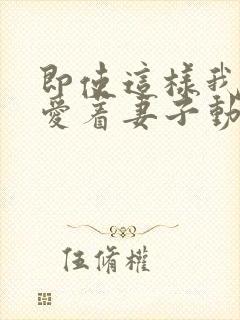 即使這樣我
愛着妻子動
伍脩權